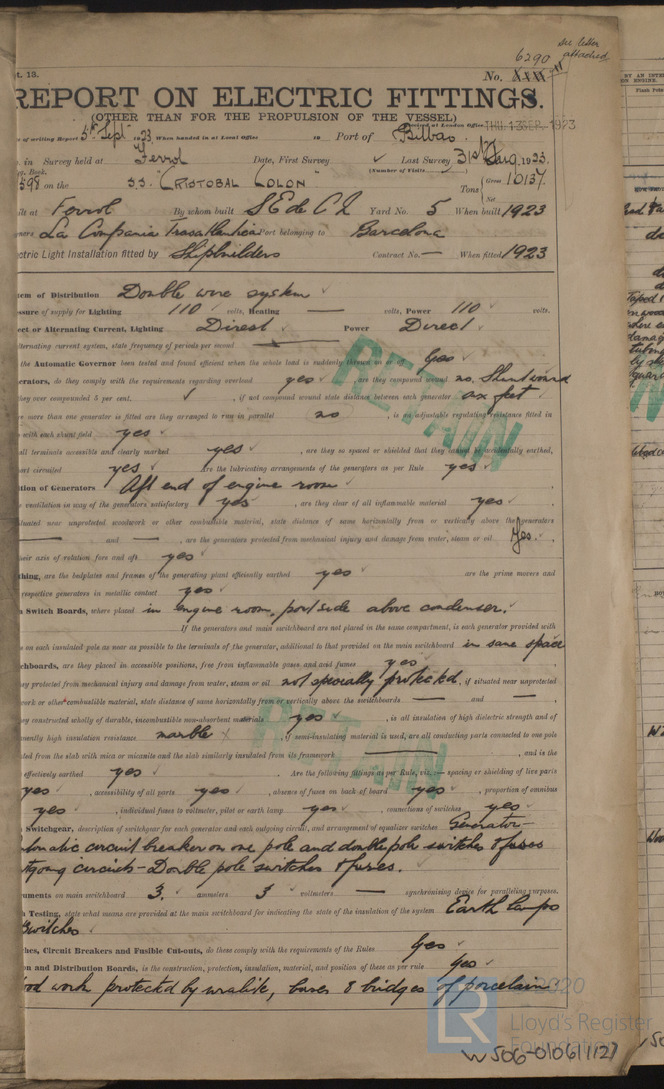 6290 see letter attached
t. 13.
No.
REPORT ON ELECTRIC FITTINGS.
(OTHER THAN FOR THE PROPULSION OF THE VESSEL)
e of writing Report 5th Sept 1923 When handed in at Local Office 19 Port of Bilbao THU. 13 SEP. 1923
in Survey held at Ferrol Date, First Survey ✓ Last Survey 31st Aug. 1923.
g. Book. (Number of Visits
598 on the S.S. CRISTOBAL COLON Tons Gross 10137. Net
ilt at Ferrol By whom built S E de C N Yard No. 5 When built 1923
ners La Compania Trasatlantica Port belonging to Barcelona
ectric Light Installation fitted by Shipbuilders Contract No. — When fitted 1923
tem of Distribution Double wire system ✓
ssure of supply for Lighting 110 ✓ volts, Heating — volts, Power 110 ✓ volts.
ect or Alternating Current, Lighting Direct ✓ Power Direct ✓
alternating current system, state frequency of periods per second —
the Automatic Governor been tested and found efficient when the whole load is suddenly thrown on or off Yes ✓
erators, do they comply with the requirements regarding overload yes ✓, are they compound wound no, Shunt wound
they over compounded 5 per cent. ✓, if not compound wound state distance between each generator six feet
re more than one generator is fitted are they arranged to run in parallel no ✓, is an adjustable regulating resistance fitted in
with each shunt field yes ✓
all terminals accessible and clearly marked yes ✓, are they so spaced or shielded that they cannot be accidentally earthed,
rt circuited yes ✓ Are the lubricating arrangements of the generators as per Rule yes ✓
ition of Generators Aft end of engine room ✓
ventilation in way of the generators satisfactory yes ✓, are they clear of all inflammable material yes ✓
ituated near unprotected woodwork or other combustible material, state distance of same horizontally from or vertically above the generators
— and —, are the generators protected from mechanical injury and damage from water, steam or oil Yes. ✓
heir axis of rotation fore and aft yes ✓
thing, are the bedplates and frames of the generating plant efficiently earthed yes ✓ are the prime movers and
respective generators in metallic contact yes ✓
n Switch Boards, where placed in engine room, port side above condenser. ✓
If the generators and main switchboard are not placed in the same compartment, is each generator provided with
e on each insulated pole as near as possible to the terminals of the generator, additional to that provided on the main switchboard in same space
tchboards, are they placed in accessible positions, free from inflammable gases and acid fumes yes ✓
ey protected from mechanical injury and damage from water, steam or oil not specially protected, if situated near unprotected
work or other combustible material, state distance of same horizontally from or vertically above the switchboards — and —
ey constructed wholly of durable, incombustible non-absorbent materials yes ✓, is all insulation of high dielectric strength and of
nently high insulation resistance marble ×, if semi-insulating material is used, are all conducting parts connected to one pole
ated from the slab with mica or micanite and the slab similarly insulated from its framework —, and is the
effectively earthed yes ✓ Are the following fittings as per Rule, viz.:— spacing or shielding of live parts
yes ✓, accessibility of all parts yes ✓, absence of fuses on back of board yes ✓, proportion of omnibus
yes ✓, individual fuses to voltmeter, pilot or earth lamp yes ✓, connections of switches yes ✓
Switchgear, description of switchgear for each generator and each outgoing circuit, and arrangement of equalizer switches Generator–
tomatic circuit breaker on one pole and double pole switches & fuses
tgoing circuits – Double pole switches & fuses. ✓
uments on main switchboard 3. ✓ ammeters 3 ✓ voltmeters — synchronising device for paralleling purposes.
h Testing, state what means are provided at the main switchboard for indicating the state of the insulation of the system Earth lamps
switches ✓
hes, Circuit Breakers and Fusible Cut-outs, do these comply with the requirements of the Rules Yes ✓
on and Distribution Boards, is the construction, protection, insulation, material, and position of these as per rule Yes ✓
ood work protected by uralite, bases & bridges of porcelain
RETAIN
RETAIN
LR
2020
Lloyd's Register
Foundation
W506-0106 1/127